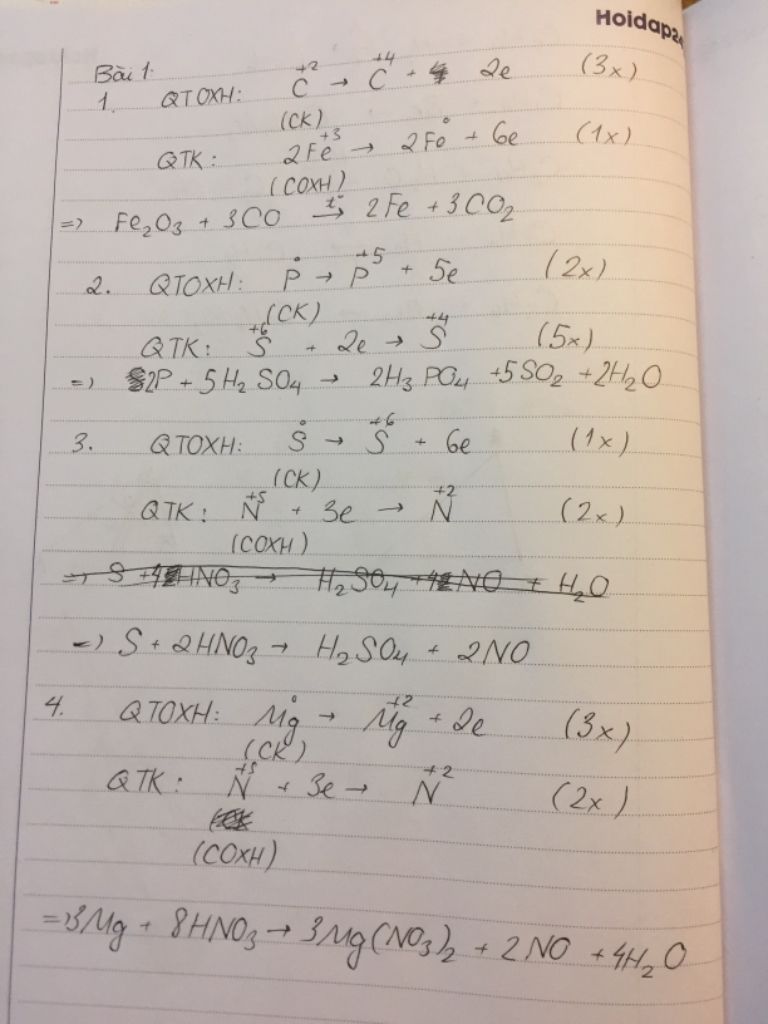 Hoidap24
Bài 1:
1. QTOXH: C⁺² → C⁺⁴ + 2e (3x)
(CK)
QTK: 2Fe⁺³ → 2Fe⁰ + 6e (1x)
(COXH)
=> Fe₂O₃ + 3CO →(t°) 2Fe + 3CO₂
2. QTOXH: P⁰ → P⁺⁵ + 5e (2x)
(CK)
QTK: S⁺⁶ + 2e → S⁺⁴ (5x)
=> 2P + 5H₂SO₄ → 2H₃PO₄ + 5SO₂ + 2H₂O
3. QTOXH: S⁰ → S⁺⁶ + 6e (1x)
(CK)
QTK: N⁺⁵ + 3e → N⁺² (2x)
(COXH)
=> S + HNO₃ → H₂SO₄ + NO + H₂O
=> S + 2HNO₃ → H₂SO₄ + 2NO
4. QTOXH: Mg⁰ → Mg⁺² + 2e (3x)
(CK)
QTK: N⁺⁵ + 3e → N⁺² (2x)
(COXH)
=> 3Mg + 8HNO₃ → 3Mg(NO₃)₂ + 2NO + 4H₂O